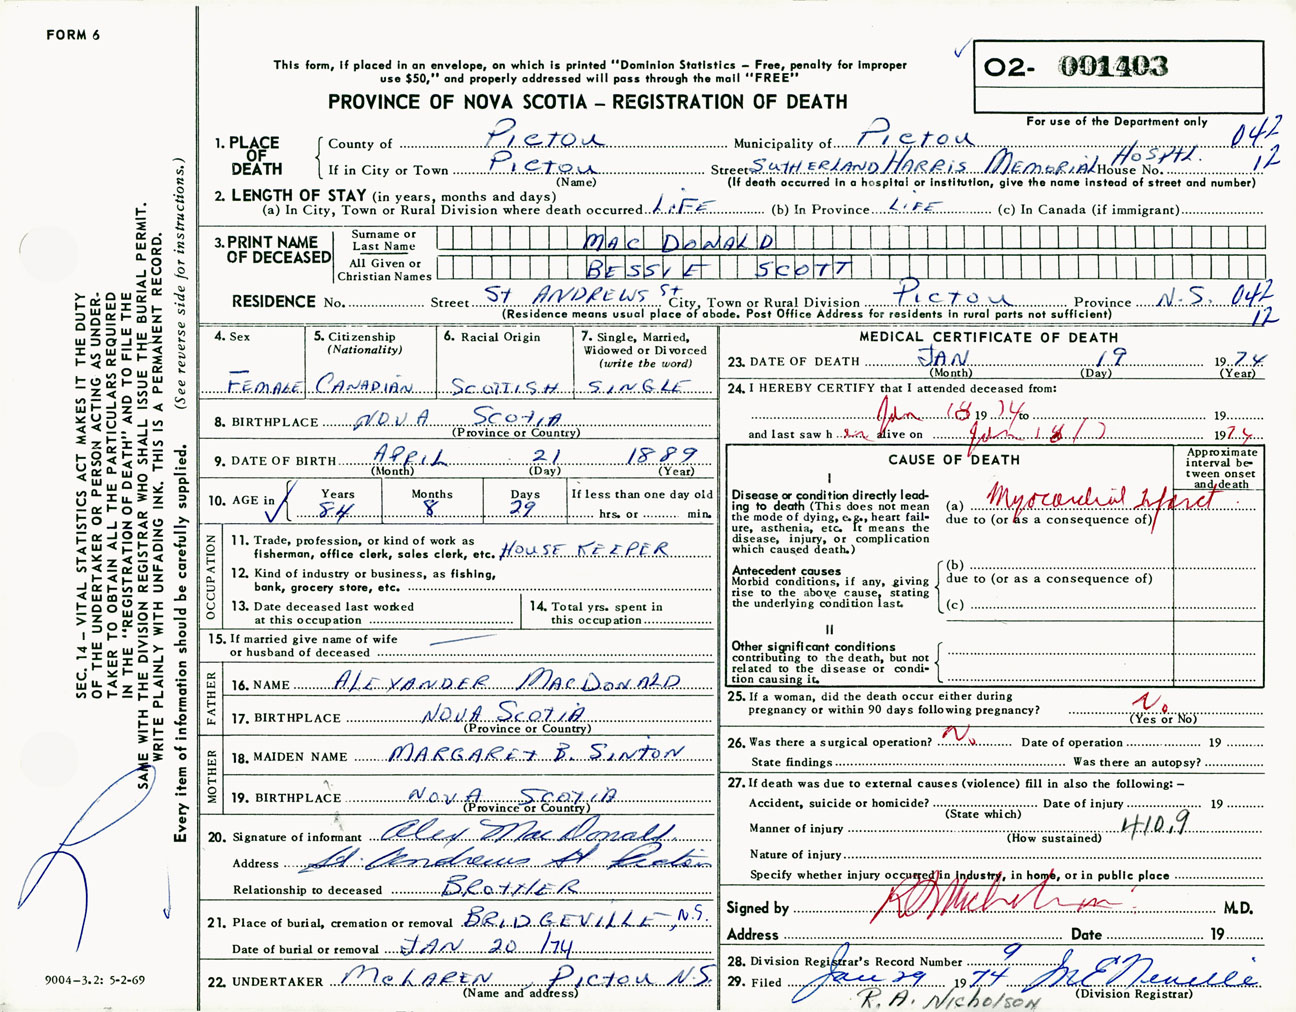 FORM 6
This form, if placed in an envelope, on which is printed "Dominion Statistics – Free, penalty for improper
use $50," and properly addressed will pass through the mail "FREE"
PROVINCE OF NOVA SCOTIA – REGISTRATION OF DEATH
O2- 001403
For use of the Department only
1. PLACE OF DEATH
County of Pictou Municipality of Pictou 042
If in City or Town Pictou Street SUTHERLAND HARRIS MEMORIAL HOSPTL. House No. 12
(Name) (If death occurred in a hospital or institution, give the name instead of street and number)
2. LENGTH OF STAY (in years, months and days)
(a) In City, Town or Rural Division where death occurred LIFE (b) In Province LIFE (c) In Canada (if immigrant)
3. PRINT NAME OF DECEASED
Surname or Last Name MAC DONALD
All Given or Christian Names BESSIE SCOTT
RESIDENCE No. Street ST ANDREWS ST City, Town or Rural Division PICTOU Province N.S. 042
(Residence means usual place of abode. Post Office Address for residents in rural parts not sufficient) 12
4. Sex
FEMALE
5. Citizenship
(Nationality)
CANADIAN
6. Racial Origin
SCOTTISH
7. Single, Married,
Widowed or Divorced
(write the word)
SINGLE
8. BIRTHPLACE NOVA SCOTIA
(Province or Country)
9. DATE OF BIRTH APRIL 21 1889
(Month) (Day) (Year)
10. AGE in Years Months Days If less than one day old
84 8 29 hrs. or min.
OCCUPATION
11. Trade, profession, or kind of work as
fisherman, office clerk, sales clerk, etc. HOUSE KEEPER
12. Kind of industry or business, as fishing,
bank, grocery store, etc.
13. Date deceased last worked
at this occupation
14. Total yrs. spent in
this occupation
15. If married give name of wife
or husband of deceased —
FATHER
16. NAME ALEXANDER MACDONALD
17. BIRTHPLACE NOVA SCOTIA
(Province or Country)
MOTHER
18. MAIDEN NAME MARGARET B. SINTON
19. BIRTHPLACE NOVA SCOTIA
(Province or Country)
20. Signature of informant Alex MacDonald
Address St. Andrews St Pictou
Relationship to deceased BROTHER
21. Place of burial, cremation or removal BRIDGEVILLE, N.S.
Date of burial or removal JAN 20/74
22. UNDERTAKER McLAREN PICTOU N.S.
(Name and address)
MEDICAL CERTIFICATE OF DEATH
23. DATE OF DEATH JAN 19 1974
(Month) (Day) (Year)
24. I HEREBY CERTIFY that I attended deceased from:
Jan 18 1974 to 19
and last saw h er alive on Jan 18 1974
CAUSE OF DEATH
Approximate
interval be-
tween onset
and death
I
Disease or condition directly lead-
ing to death (This does not mean
the mode of dying, e.g., heart fail-
ure, asthenia, etc. It means the
disease, injury, or complication
which caused death.)
(a) Myocardial Infarct
due to (or as a consequence of)
Antecedent causes
Morbid conditions, if any, giving
rise to the above cause, stating
the underlying condition last.
(b)
due to (or as a consequence of)
(c)
II
Other significant conditions
contributing to the death, but not
related to the disease or condi-
tion causing it.
25. If a woman, did the death occur either during
pregnancy or within 90 days following pregnancy? No
(Yes or No)
26. Was there a surgical operation? No Date of operation 19
State findings Was there an autopsy?
27. If death was due to external causes (violence) fill in also the following: –
Accident, suicide or homicide? Date of injury 19
(State which)
Manner of injury 410.9
(How sustained)
Nature of injury
Specify whether injury occurred in industry, in home, or in public place
Signed by R A Nicholson M.D.
Address Date 19
28. Division Registrar's Record Number 9
29. Filed Jan 29 1974 McE Neville
(Division Registrar)
R. A. Nicholson
SEC. 14 – VITAL STATISTICS ACT MAKES IT THE DUTY
OF THE UNDERTAKER OR PERSON ACTING AS UNDER-
TAKER TO OBTAIN ALL THE PARTICULARS REQUIRED
IN THE "REGISTRATION OF DEATH" AND TO FILE THE
SAME WITH THE DIVISION REGISTRAR WHO SHALL ISSUE THE BURIAL PERMIT.
WRITE PLAINLY WITH UNFADING INK. THIS IS A PERMANENT RECORD.
Every item of information should be carefully supplied. (See reverse side for instructions.)
9004-3.2: 5-2-69